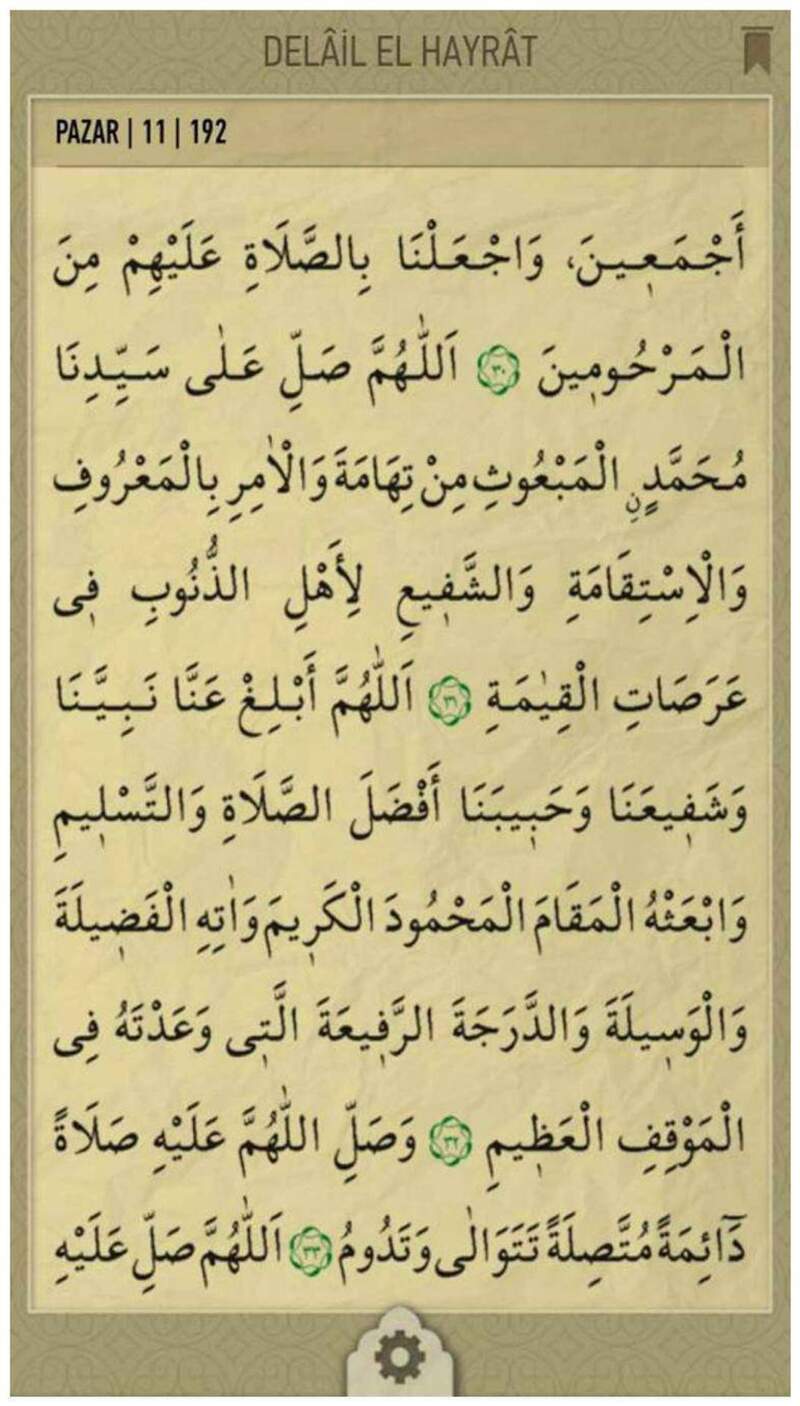 DELÂİL EL HAYRÂT
PAZAR | 11 | 192
أَجْمَعِينَ، وَاجْعَلْنَا بِالصَّلَاةِ عَلَيْهِمْ مِنَ
الْمَرْحُومِينَ ٣٠ اَللّٰهُمَّ صَلِّ عَلٰى سَيِّدِنَا
مُحَمَّدٍ نِ الْمَبْعُوثِ مِنْ تِهَامَةَ وَالْاٰمِرِ بِالْمَعْرُوفِ
وَالْاِسْتِقَامَةِ وَالشَّفِيعِ لِأَهْلِ الذُّنُوبِ فِى
عَرَصَاتِ الْقِيٰمَةِ ٣١ اَللّٰهُمَّ أَبْلِغْ عَنَّا نَبِيَّنَا
وَشَفِيعَنَا وَحَبِيبَنَا أَفْضَلَ الصَّلَاةِ وَالتَّسْلِيمِ
وَابْعَثْهُ الْمَقَامَ الْمَحْمُودَ الْكَرِيمَ وَاٰتِهِ الْفَضِيلَةَ
وَالْوَسِيلَةَ وَالدَّرَجَةَ الرَّفِيعَةَ الَّتِى وَعَدْتَهُ فِى
الْمَوْقِفِ الْعَظِيمِ ٣٢ وَصَلِّ اللّٰهُمَّ عَلَيْهِ صَلَاةً
دَٓائِمَةً مُتَّصِلَةً تَتَوَالٰى وَتَدُومُ ٣٣ اَللّٰهُمَّ صَلِّ عَلَيْهِ